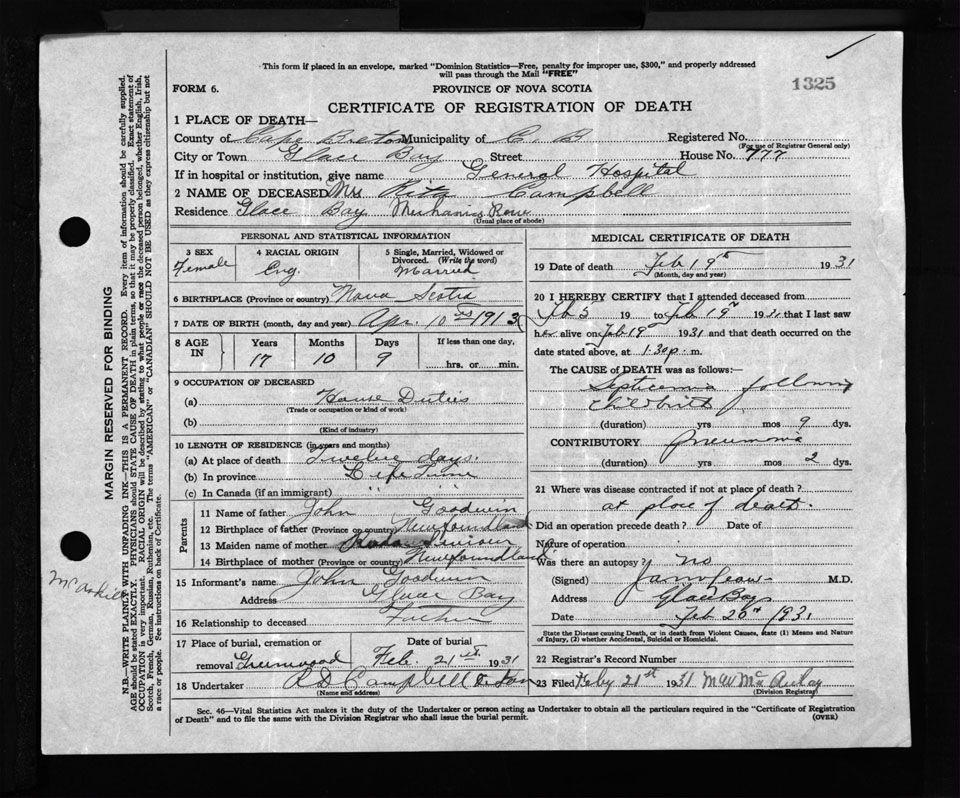 This form if placed in an envelope, marked "Dominion Statistics—Free, penalty for improper use, $300," and properly addressed
will pass through the Mail "FREE"
1325
FORM 6.
PROVINCE OF NOVA SCOTIA
CERTIFICATE OF REGISTRATION OF DEATH
1 PLACE OF DEATH—
County of Cape Breton Municipality of C. B Registered No.
(For use of Registrar General only)
City or Town Glace Bay Street House No. 777
If in hospital or institution, give name General Hospital
2 NAME OF DECEASED Mrs Rita Campbell
Residence Glace Bay Mechanics Rowe
(Usual place of abode)
PERSONAL AND STATISTICAL INFORMATION
3 SEX
Female
4 RACIAL ORIGIN
Eng.
5 Single, Married, Widowed or
Divorced. (Write the word)
Married
6 BIRTHPLACE (Province or country) Nova Scotia
7 DATE OF BIRTH (month, day and year) Apr. 10 1913
8 AGE IN
Years Months Days If less than one day,
17 10 9 hrs. or min.
9 OCCUPATION OF DECEASED
(a) House Duties
(Trade or occupation or kind of work)
(b)
(Kind of industry)
10 LENGTH OF RESIDENCE (in years and months)
(a) At place of death Twelve days.
(b) In province Life Time
(c) In Canada (if an immigrant) " "
Parents
11 Name of father John Goodwin
12 Birthplace of father (Province or country) Newfoundland
13 Maiden name of mother
14 Birthplace of mother (Province or country) Newfoundland
15 Informant's name John Goodwin
Address Glace Bay
16 Relationship to deceased Father
17 Place of burial, cremation or Date of burial
removal Greenwood Feb. 21st. 1931
18 Undertaker R D Campbell & Son
(Name and address)
MEDICAL CERTIFICATE OF DEATH
19 Date of death Feb 19th 1931
(Month, day and year)
20 I HEREBY CERTIFY that I attended deceased from
Feb 5 19 to Feb 19th 1931 that I last saw
her alive on Feb 19th 1931 and that death occurred on
the date stated above, at 1.30 p. m.
The CAUSE of DEATH was as follows:—
Septicemia following
childbirth
(duration) yrs mos 9 dys.
CONTRIBUTORY Pneumonia
(duration) yrs mos 2 dys.
21 Where was disease contracted if not at place of death?
at place of death.
Did an operation precede death? Date of
Nature of operation
Was there an autopsy? no
(Signed) M.D.
Address Glace Bay
Date Feb 20th 1931
State the Disease causing Death, or in death from Violent Causes, state (1) Means and Nature
of Injury, (2) whether Accidental, Suicidal or Homicidal.
22 Registrar's Record Number
23 Filed Feby 21st 1931
(Division Registrar)
Sec. 46—Vital Statistics Act makes it the duty of the Undertaker or person acting as Undertaker to obtain all the particulars required in the "Certificate of Registration
of Death" and to file the same with the Division Registrar who shall issue the burial permit.
(OVER)
MARGIN RESERVED FOR BINDING
N.B.—WRITE PLAINLY WITH UNFADING INK—THIS IS A PERMANENT RECORD. Every item of information should be carefully supplied.
AGE should be stated EXACTLY. PHYSICIANS should STATE CAUSE OF DEATH in plain terms, so that it may be properly classified. Exact statement of
OCCUPATION is very important. RACIAL ORIGIN will be described by stating to what people or race the deceased person belonged, whether English, Irish,
Scotch, French, German, Russian, Ruthenian, etc. The terms "AMERICAN" or "CANADIAN" SHOULD NOT BE USED as they express citizenship but not
a race or people. See instructions on back of Certificate.